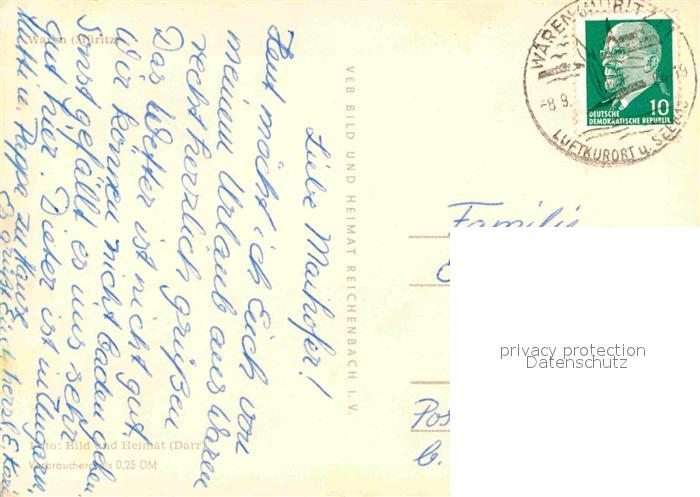 Waren (Müritz)
Liebe Maihofer!
Heut möcht ich Euch von
meinem Urlaub aus Waren
recht herzlich grüßen
Das Wetter ist nicht gut,
Wir können nicht baden gehen
Sonst gefällt es uns sehr
gut hier. Dieter ist in Ungarn
Mutti u. Pappa zu Hause
Es grüßt Euch herzl. E.
Foto: Bild und Heimat (Darr)
Verbraucherpreis 0,25 DM
VEB BILD UND HEIMAT REICHENBACH I. V.
WAREN (MÜRITZ)
-8.9.
LUFTKURORT u.
10
DEUTSCHE
DEMOKRATISCHE REPUBLIK
Familie
Pos
b.
privacy protection
Datenschutz